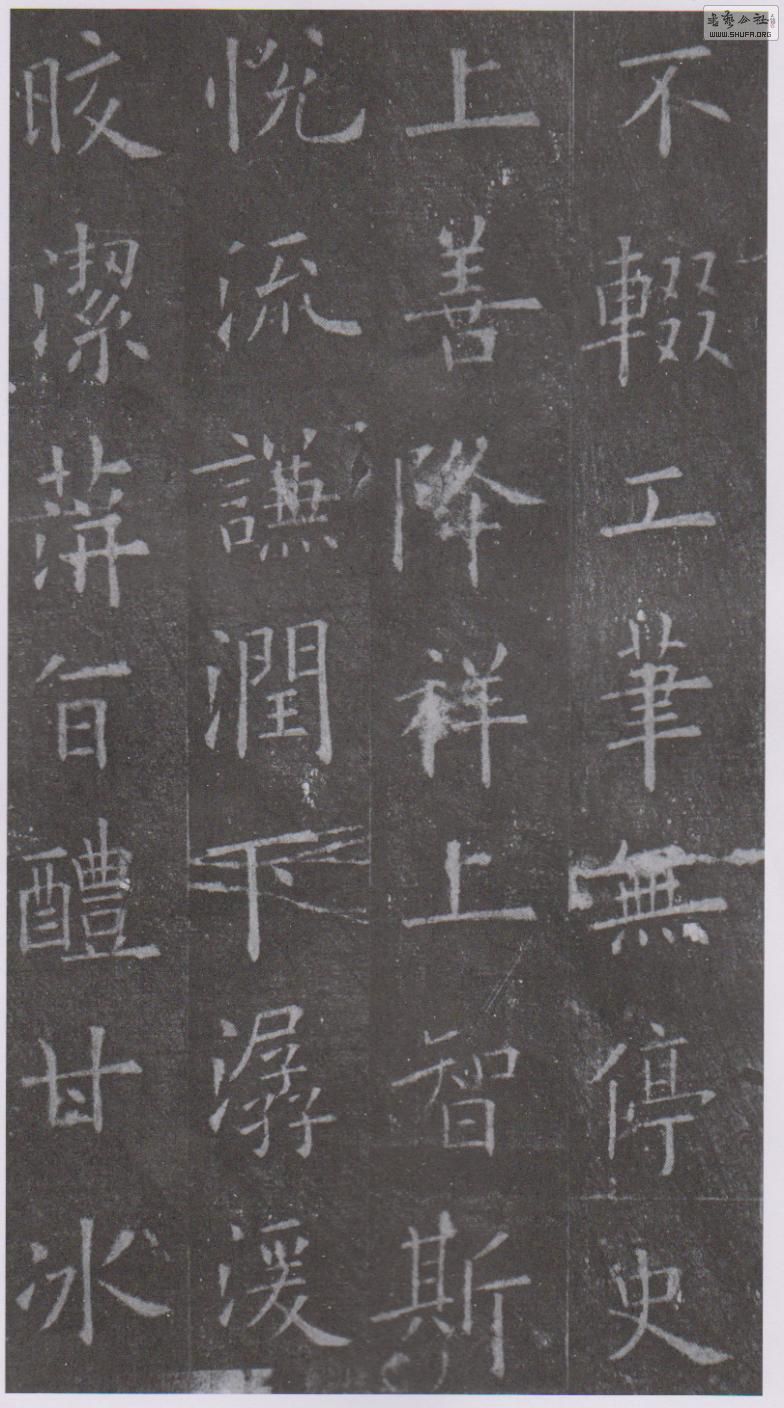 不輟工筆無停史
上善降祥上智斯
悅流謙潤下潺湲
晈潔蓱旨醴甘冰
书艺公社
WWW.SHUFA.ORG